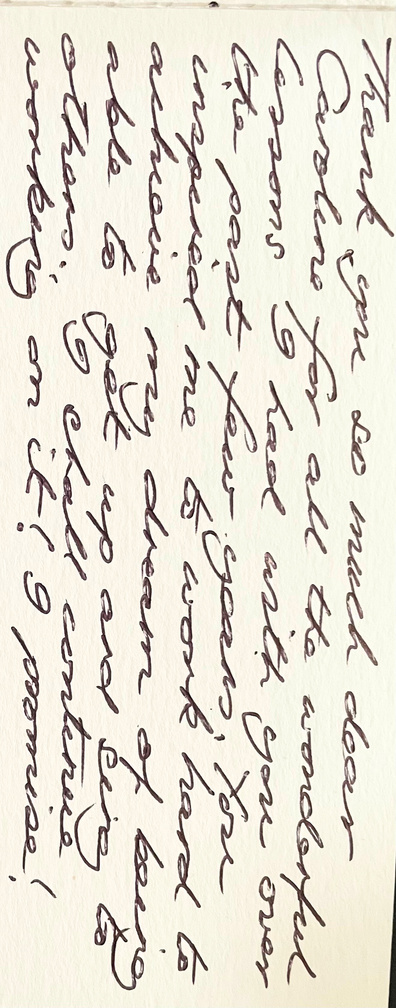 Thank you so much dear
Caroline for all the wonderful
lessons I had with you over
the past few years, You
inspired me to work hard to
achieve my dream of being
able to get up and sing to
others. I shall continue
working on it! I promise!